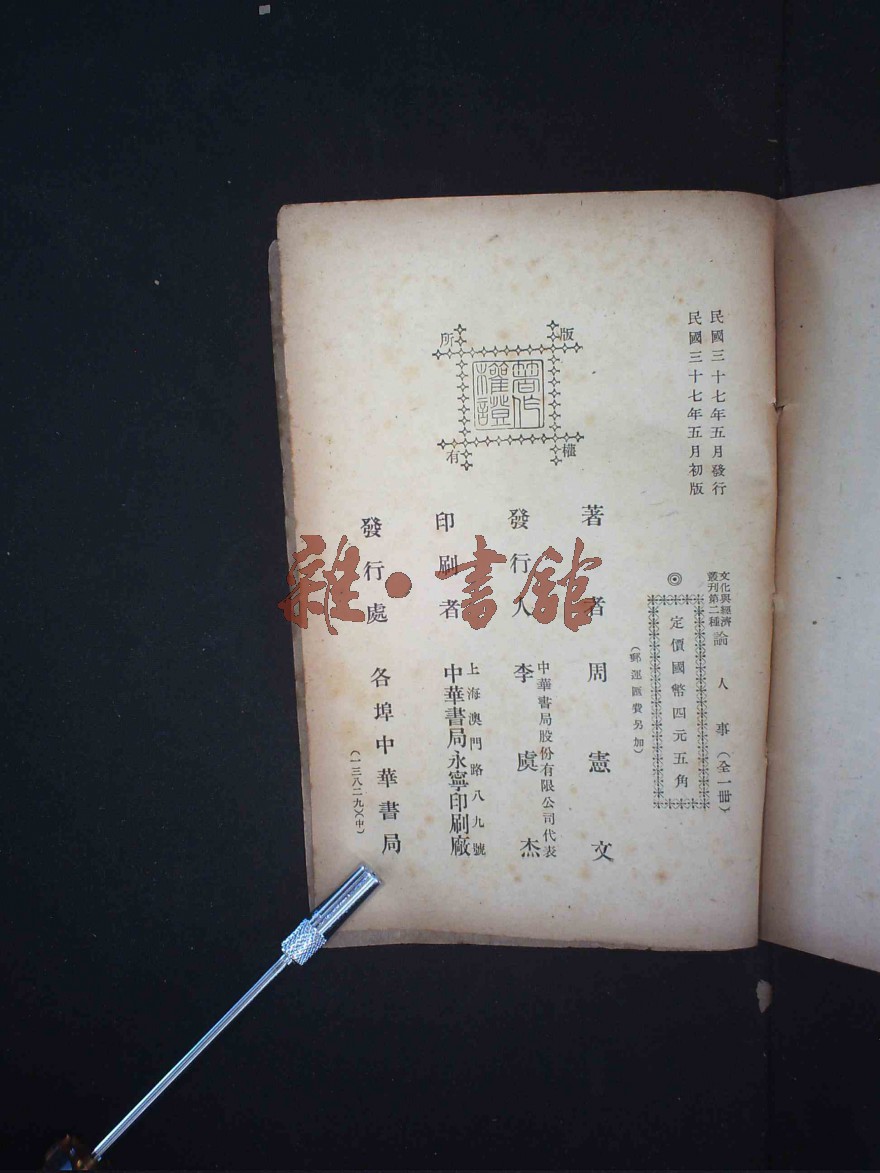 民國三十七年五月發行
民國三十七年五月初版
文化與經濟
叢刊第二種
論人事(全一冊)
◎
定價國幣四元五角
(郵運匯費另加)
著者 周憲文
中華書局股份有限公司代表
發行人 李虞杰
上海澳門路八九號
印刷者 中華書局永寧印刷廠
發行處 各埠中華書局
(一三八二九)(中)
版權所有
著作權證
雜·書館